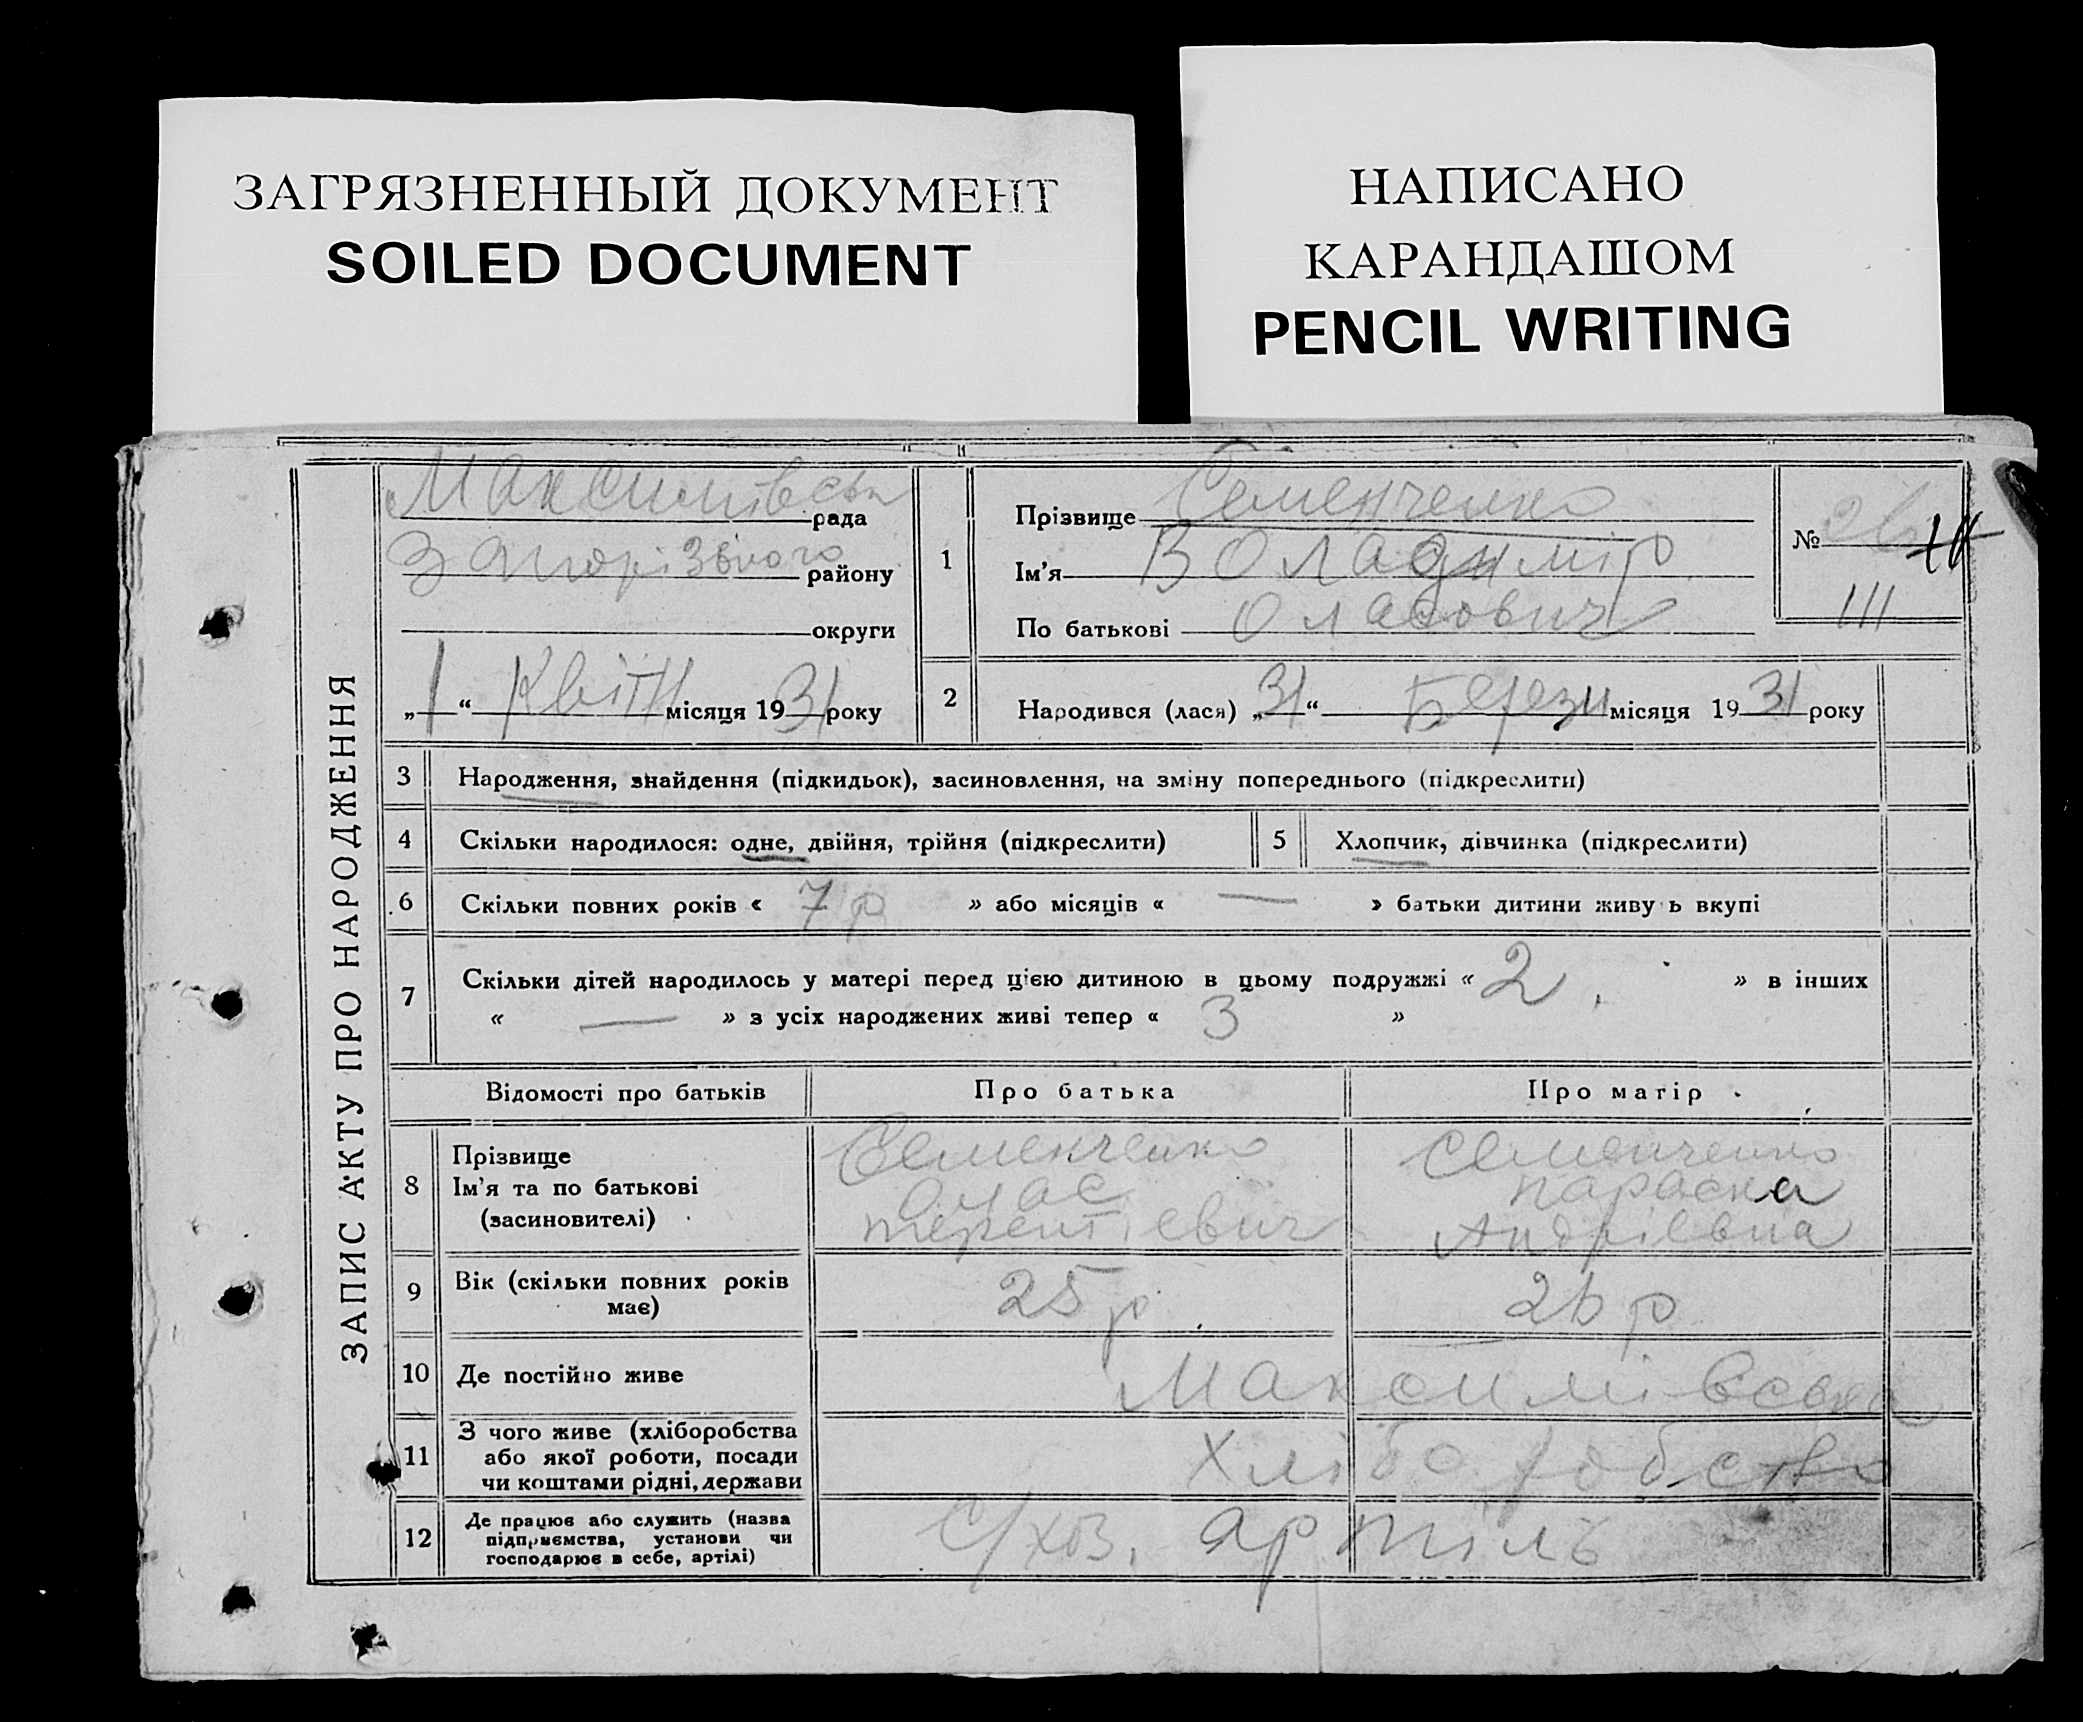 ЗАГРЯЗНЕННЫЙ ДОКУМЕНТ
SOILED DOCUMENT
НАПИСАНО
КАРАНДАШОМ
PENCIL WRITING
ЗАПИС АКТУ ПРО НАРОДЖЕННЯ
Максимівська рада
району
округи
„1“ Квітн місяця 1931 року
1
Прізвище Семенченко
Ім'я Воладимір
По батькові Оласович
№
III
2
Народився (лася) „31“ Березн місяця 1931 року
3 Народження, знайдення (підкидьок), засиновлення, на зміну попереднього (підкреслити)
4 Скільки народилося: одне, двійня, трійня (підкреслити)
5 Хлопчик, дівчинка (підкреслити)
6 Скільки повних років « 7 р » або місяців « — » батьки дитини живуть вкупі
7 Скільки дітей народилось у матері перед цією дитиною в цьому подружжі « 2. » в інших
« — » з усіх народжених живі тепер « 3 »
Відомості про батьків Про батька Про матір
8 Прізвище
Ім'я та по батькові
(засиновителі)
Семенченко
Терентіевич
Семенченко
Параска
Андріевна
9 Вік (скільки повних років
має)
25 р
26 р
10 Де постійно живе
Максимівська
11 З чого живе (хліборобства
або якої роботи, посади
чи коштами рідні, держави
Хліборобство
12 Де працює або служить (назва
підприємства, установи чи
господарює в себе, артілі)
С/хоз. артіль